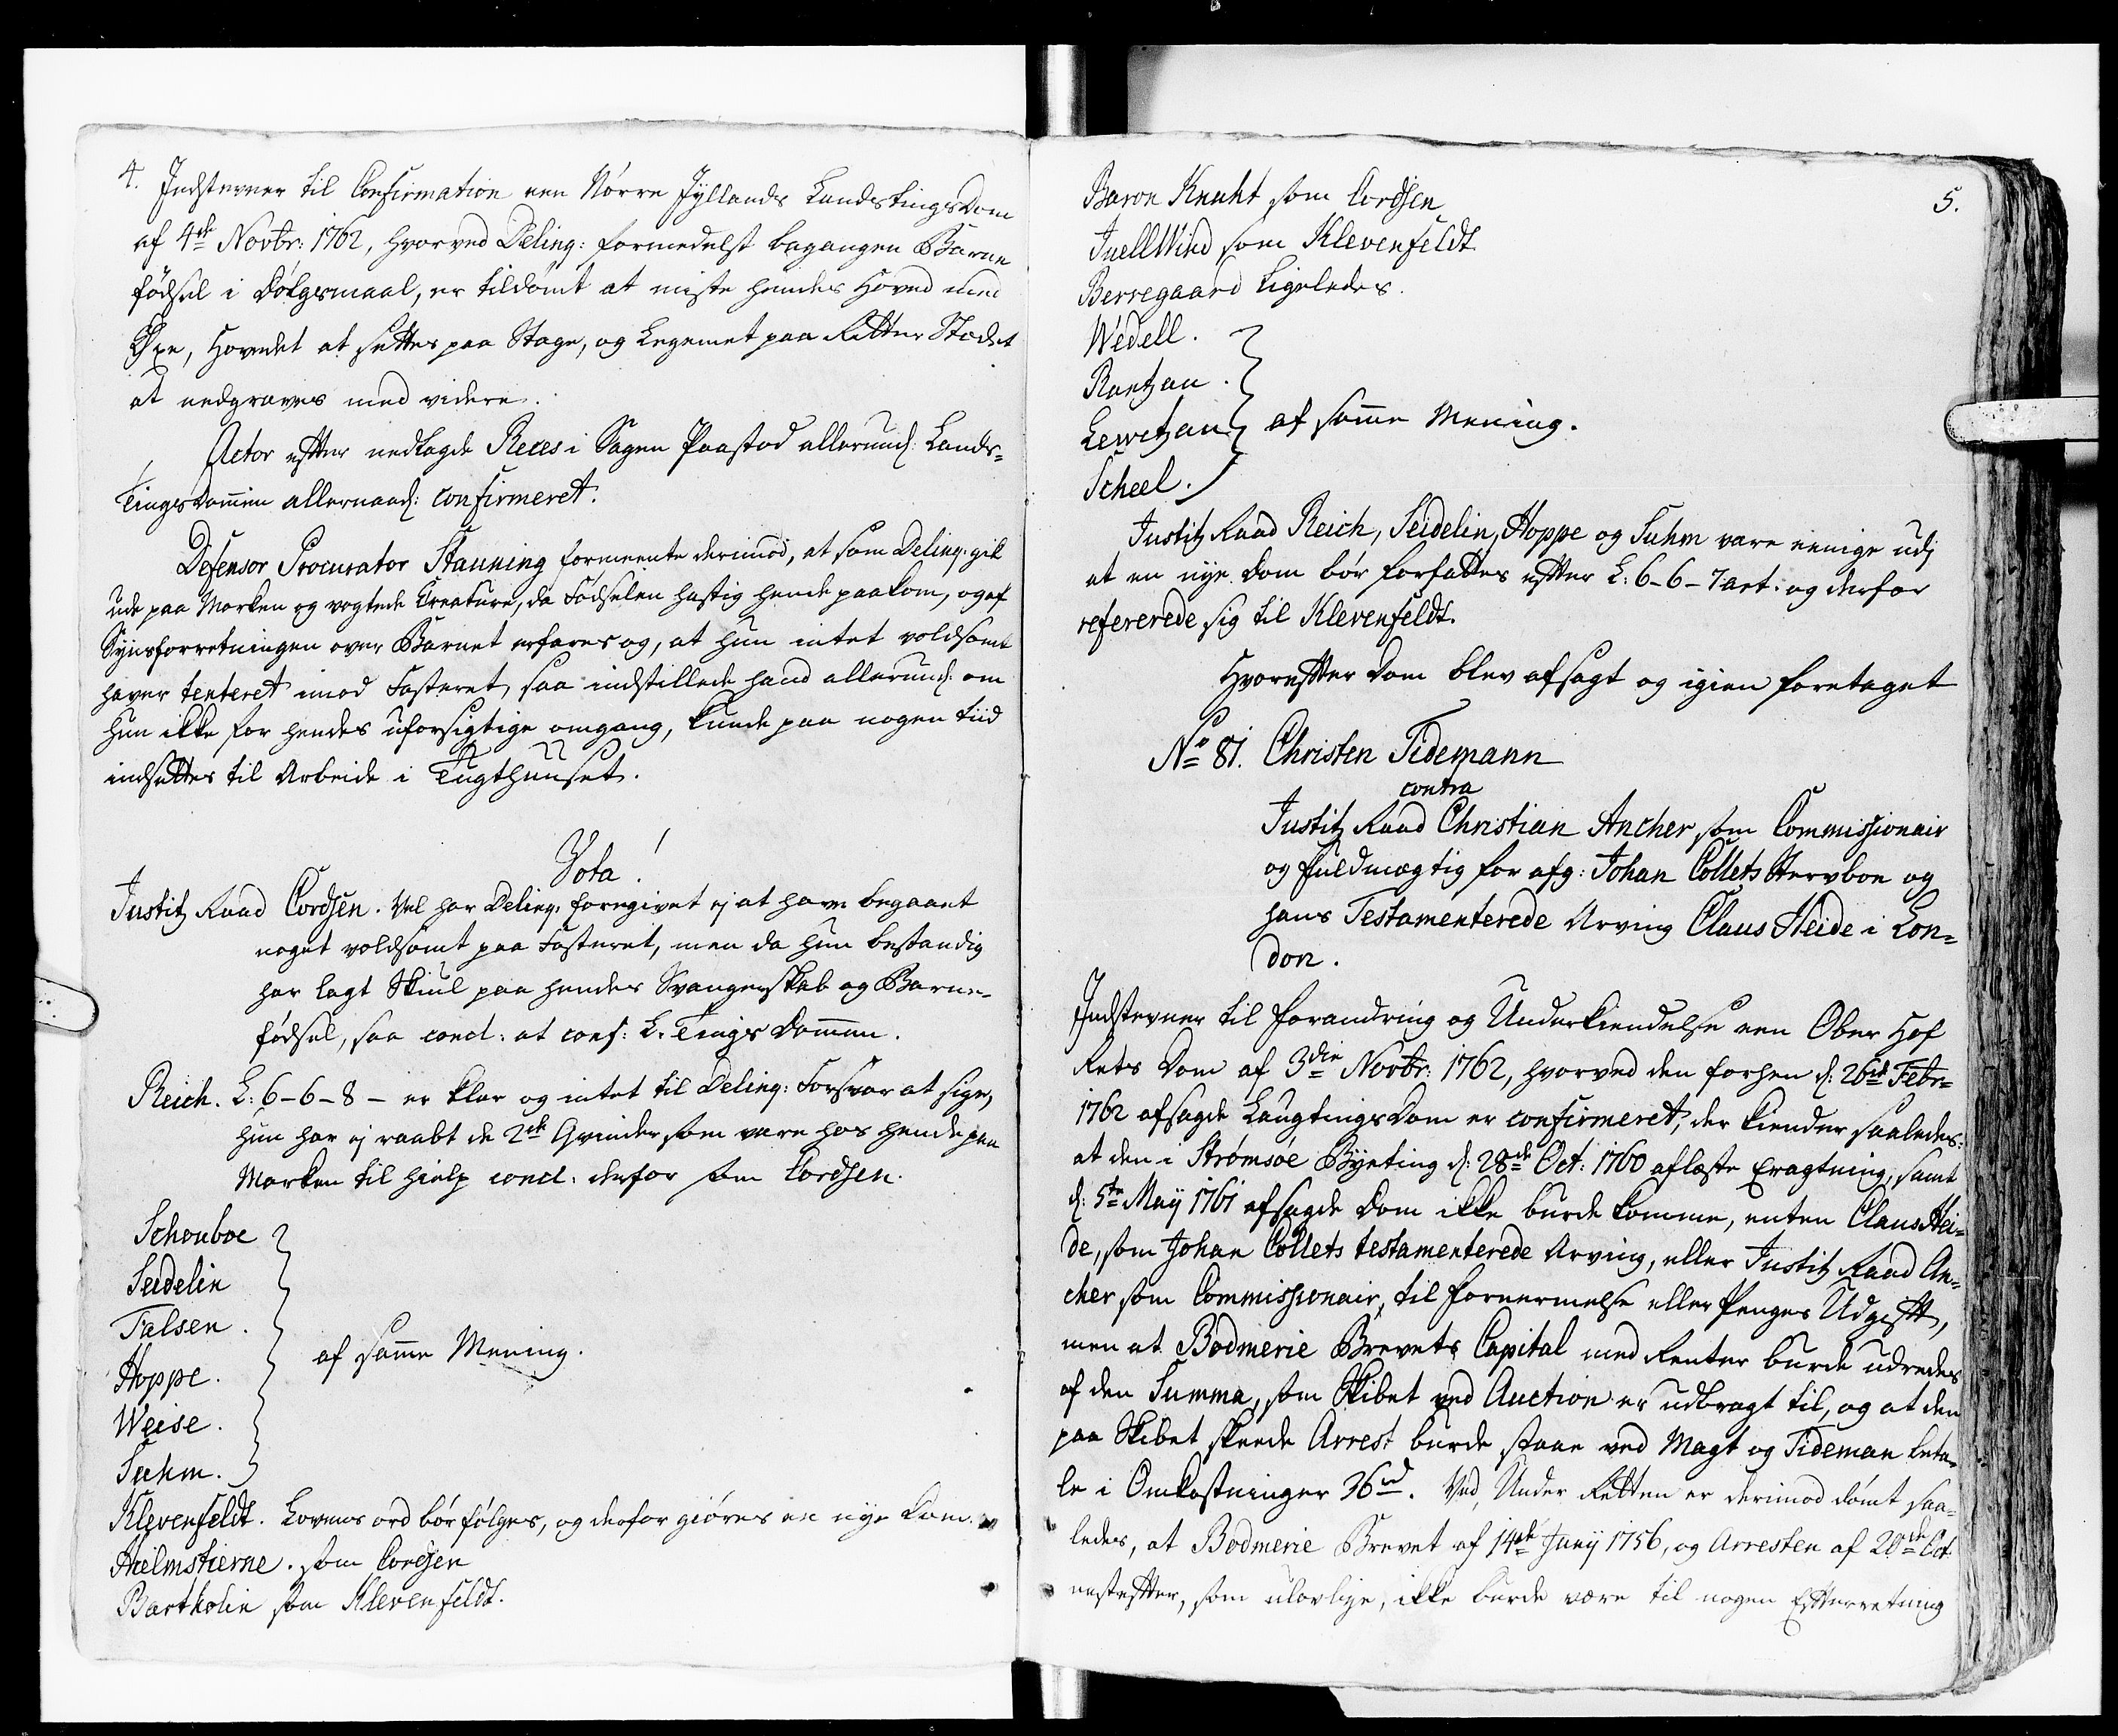 4. Indstevner til Confirmation een Nörre Jyllands Landstings Dom
af 4de Novbr: 1762, hvorved Delinq: formedelst begangen Barne
födsel i Dölgsmaal, er tildömt at miste hendes Hoved med
Öxe, Hovedet at settes paa Stage, og Legemet paa Retter Stædet
at nedgraves med videre.
Actor efter nedlagde Reces i Sagen Paastod allerund: Lands-
Tings Dommen allernaad: confirmeret.
Defensor Procurator Stauning formeente derimod, at som Delinq: gik
ude paa Marken og vogtede Creature, da Födselen hastig hende paakom, og af
Synsforretningen over Barnet erfares og, at hun intet voldsomt
haver tenteret imod Fosteret, saa indstillede hand allerund: om
hun ikke for hendes uforsigtige omgang, kunde paa nogen tiid
indsettes til Arbeide i Tugthuuset.
Vota!
Justitz Raad Cordsen. Vel har Delinq: foregivet ej at have begaaet
noget voldsomt paa Fosteret, men da hun bestandig
har lagt Skiul paa hendes Svangerskab og Barne-
födsel, saa concl: at conf: L. Tings Dommen.
Reich. L: 6-6-8- er klar og intet til Delinq: Forsvar at sige,
hun har ej raabt de 2de Qvinder som vare hos hende paa
Marken til hielp concl: derfor som Cordsen.
Schouboe
Seidelin
Falsen.
Hoppe.
af samme Mening.
Weise.
Suhm.
Klevenfeldt. Lovens ord bör fölges, og derfor giöres en nye Dom.
Hielmstierne. som Cordsen
Bartholin som Klevenfeldt.
5.
Baron Knuht som Cordsen
Juell Wind som Klevenfeldt
Berregaard ligeledes.
Wedell.
Rantzau.
Lewetzau af samme Mening.
Scheel.
Justitz Raad Reich, Seidelin, Hoppe og Suhm vare eenige udj
at en nye Dom bör forfattes efter L: 6-6-7 art: og derfor
refererede sig til Klevenfeldt.
Hvorefter Dom blev afsagt og igien foretaget
No 81. Christen Tidemann
contra
Justitz Raad Christian Ancher, som Commissionair
og fuldmægtig for afg: Johan Collets Sterboe og
hans Testamenterede Arving Claus Heide i Lon-
don.
Indstevner til forandring og Underkiendelse een Ober Hof
Rets Dom af 3die Novbr: 1762, hvorved den forhen d: 26de Febr-
1762 afsagde Laugtings Dom er confirmeret, der kiender saaledes:
at den i Strömsöe Byeting d: 28de Oct: 1760 aflæste Eragtning, samt
d: 5te Maij 1761 afsagde Dom ikke burde komme, enten Claus Hei-
de, som Johan Collets testamenterede Arving, eller Justitz Raad An-
cher som Commissionair, til fornermelse eller Penges Udgift,
men at Bodmerie Brevets Capital med Renter burde udredes
af den Summa, som Skibet ved Auction er udbragt til, og at den
paa Skibet skeede Arrest burde staae ved Magt og Tideman beta-
le i Omkostninger 36 rd. Ved Under Retten er derimod dömt saa-
ledes, at Bodmerie Brevet af 14de Junij 1756, og Arresten af 20de Oct:
nestefter, som ulovlige, ikke burde være til nogen Efterretning